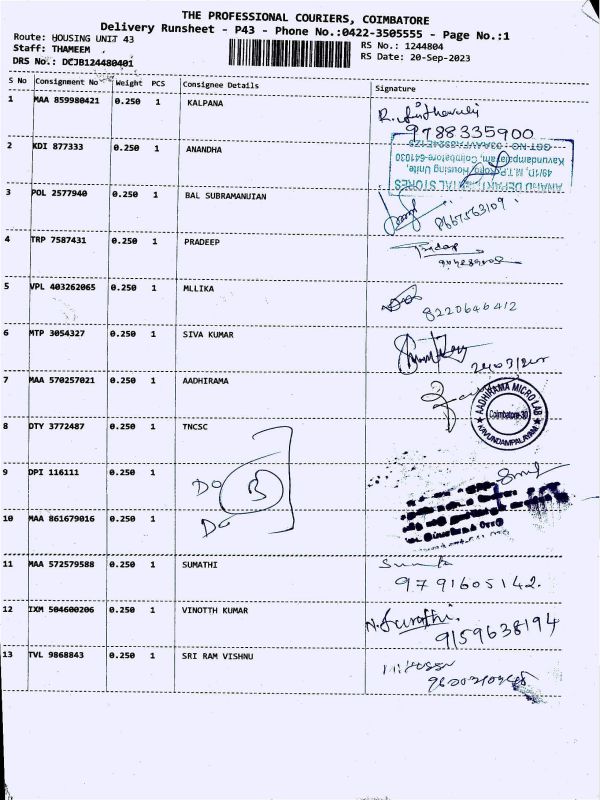 THE PROFESSIONAL COURIERS, COIMBATORE
Delivery Runsheet - P43 - Phone No.:0422-3505555 - Page No.:1
Route: HOUSING UNIT 43
Staff: THAMEEM
DRS No.: DCJB124480401
RS No.: 1244804
RS Date: 20-Sep-2023
S No Consignment No Weight PCS Consignee Details Signature
1 MAA 859980421 0.250 1 KALPANA
9788335900
2 KDI 877333 0.250 1 ANANDHA
ANAND DEPARTMENTAL STORES
49/1D, M.T.P. Road, Housing Unite,
Kavundampalayam, Coimbatore-641030
3 POL 2577940 0.250 1 BAL SUBRAMANUIAN
8667563109
4 TRP 7587431 0.250 1 PRADEEP
Pradeep
5 VPL 403262065 0.250 1 MLLIKA
8220646412
6 MTP 3054327 0.250 1 SIVA KUMAR
7 MAA 570257021 0.250 1 AADHIRAMA
AADHIRAMA MICRO LAB
Coimbatore-30
KAVUNDAMPALAYAM
8 DTY 3772487 0.250 1 TNCSC
9 DPI 116111 0.250 1
Do
B
10 MAA 861679016 0.250 1
Do
11 MAA 572579588 0.250 1 SUMATHI
9791605142.
12 IXM 504600206 0.250 1 VINOTTH KUMAR
9159638194
13 TVL 9868843 0.250 1 SRI RAM VISHNU